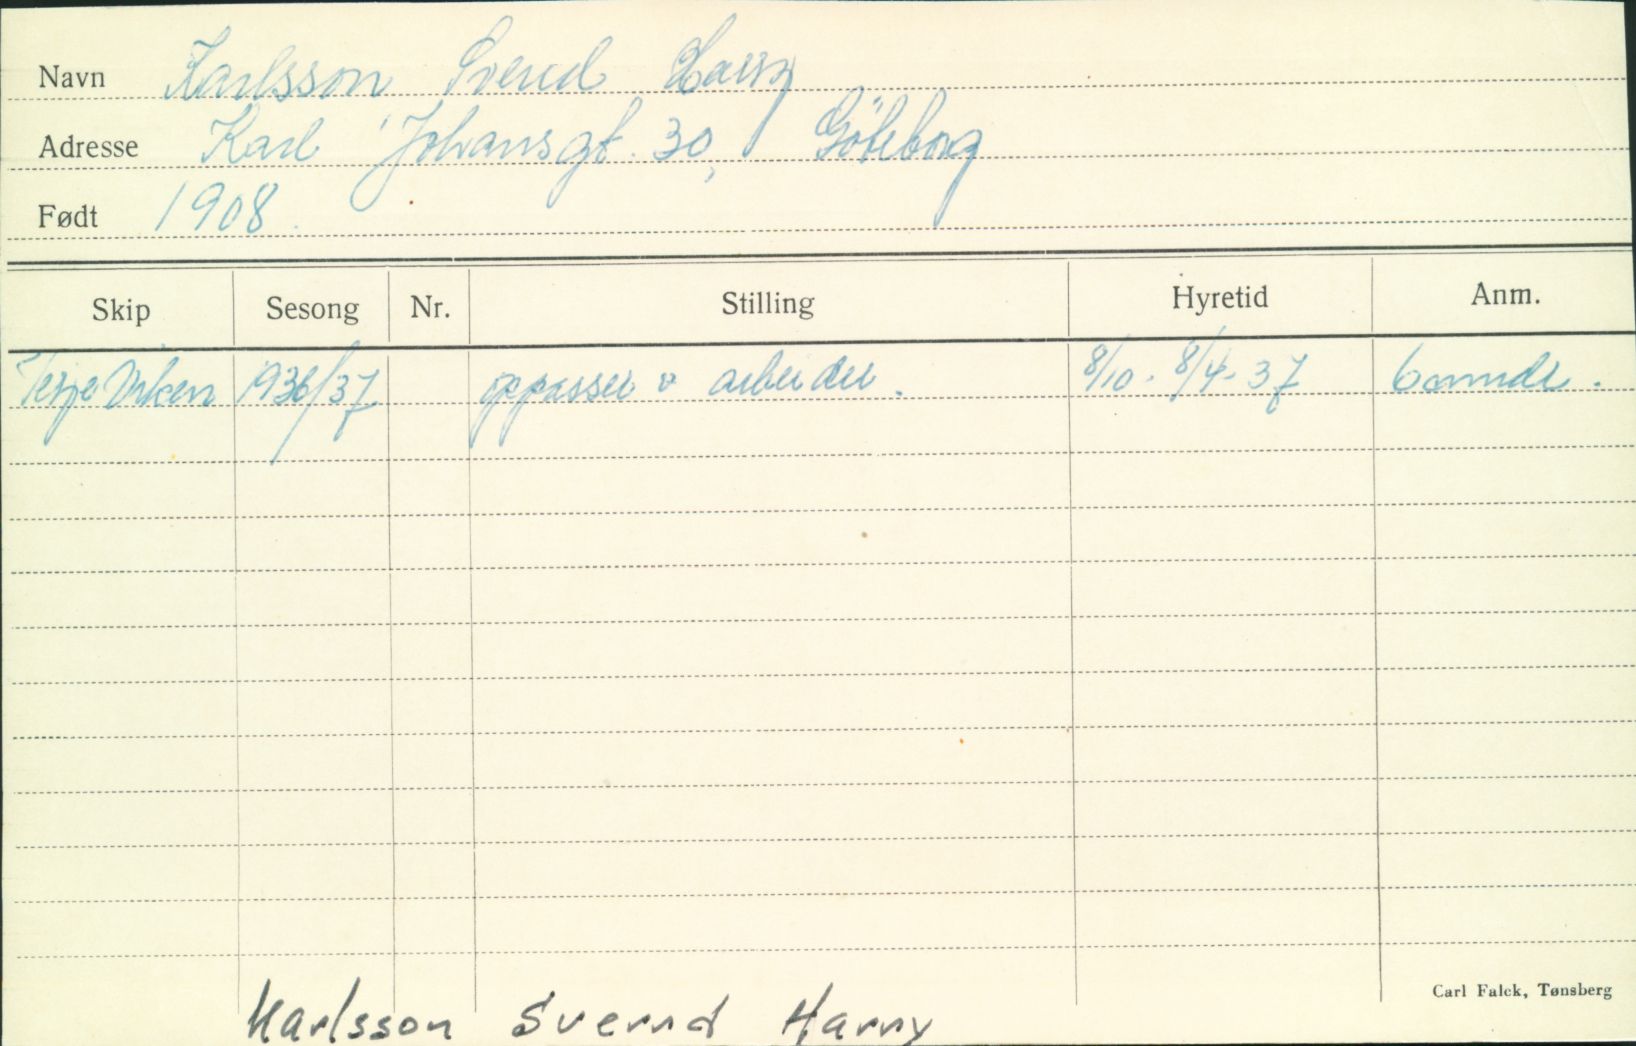 Navn Karlsson Svend Harry
Adresse Karl Johansgt. 30, Göteborg
Født 1908.
Skip Sesong Nr. Stilling Hyretid Anm.
Terje Viken 1936/37 oppasser o arbeider. 8/10 - 8/4-37 6 mndr.
Carl Falck, Tønsberg
Karlsson Svernd Harry